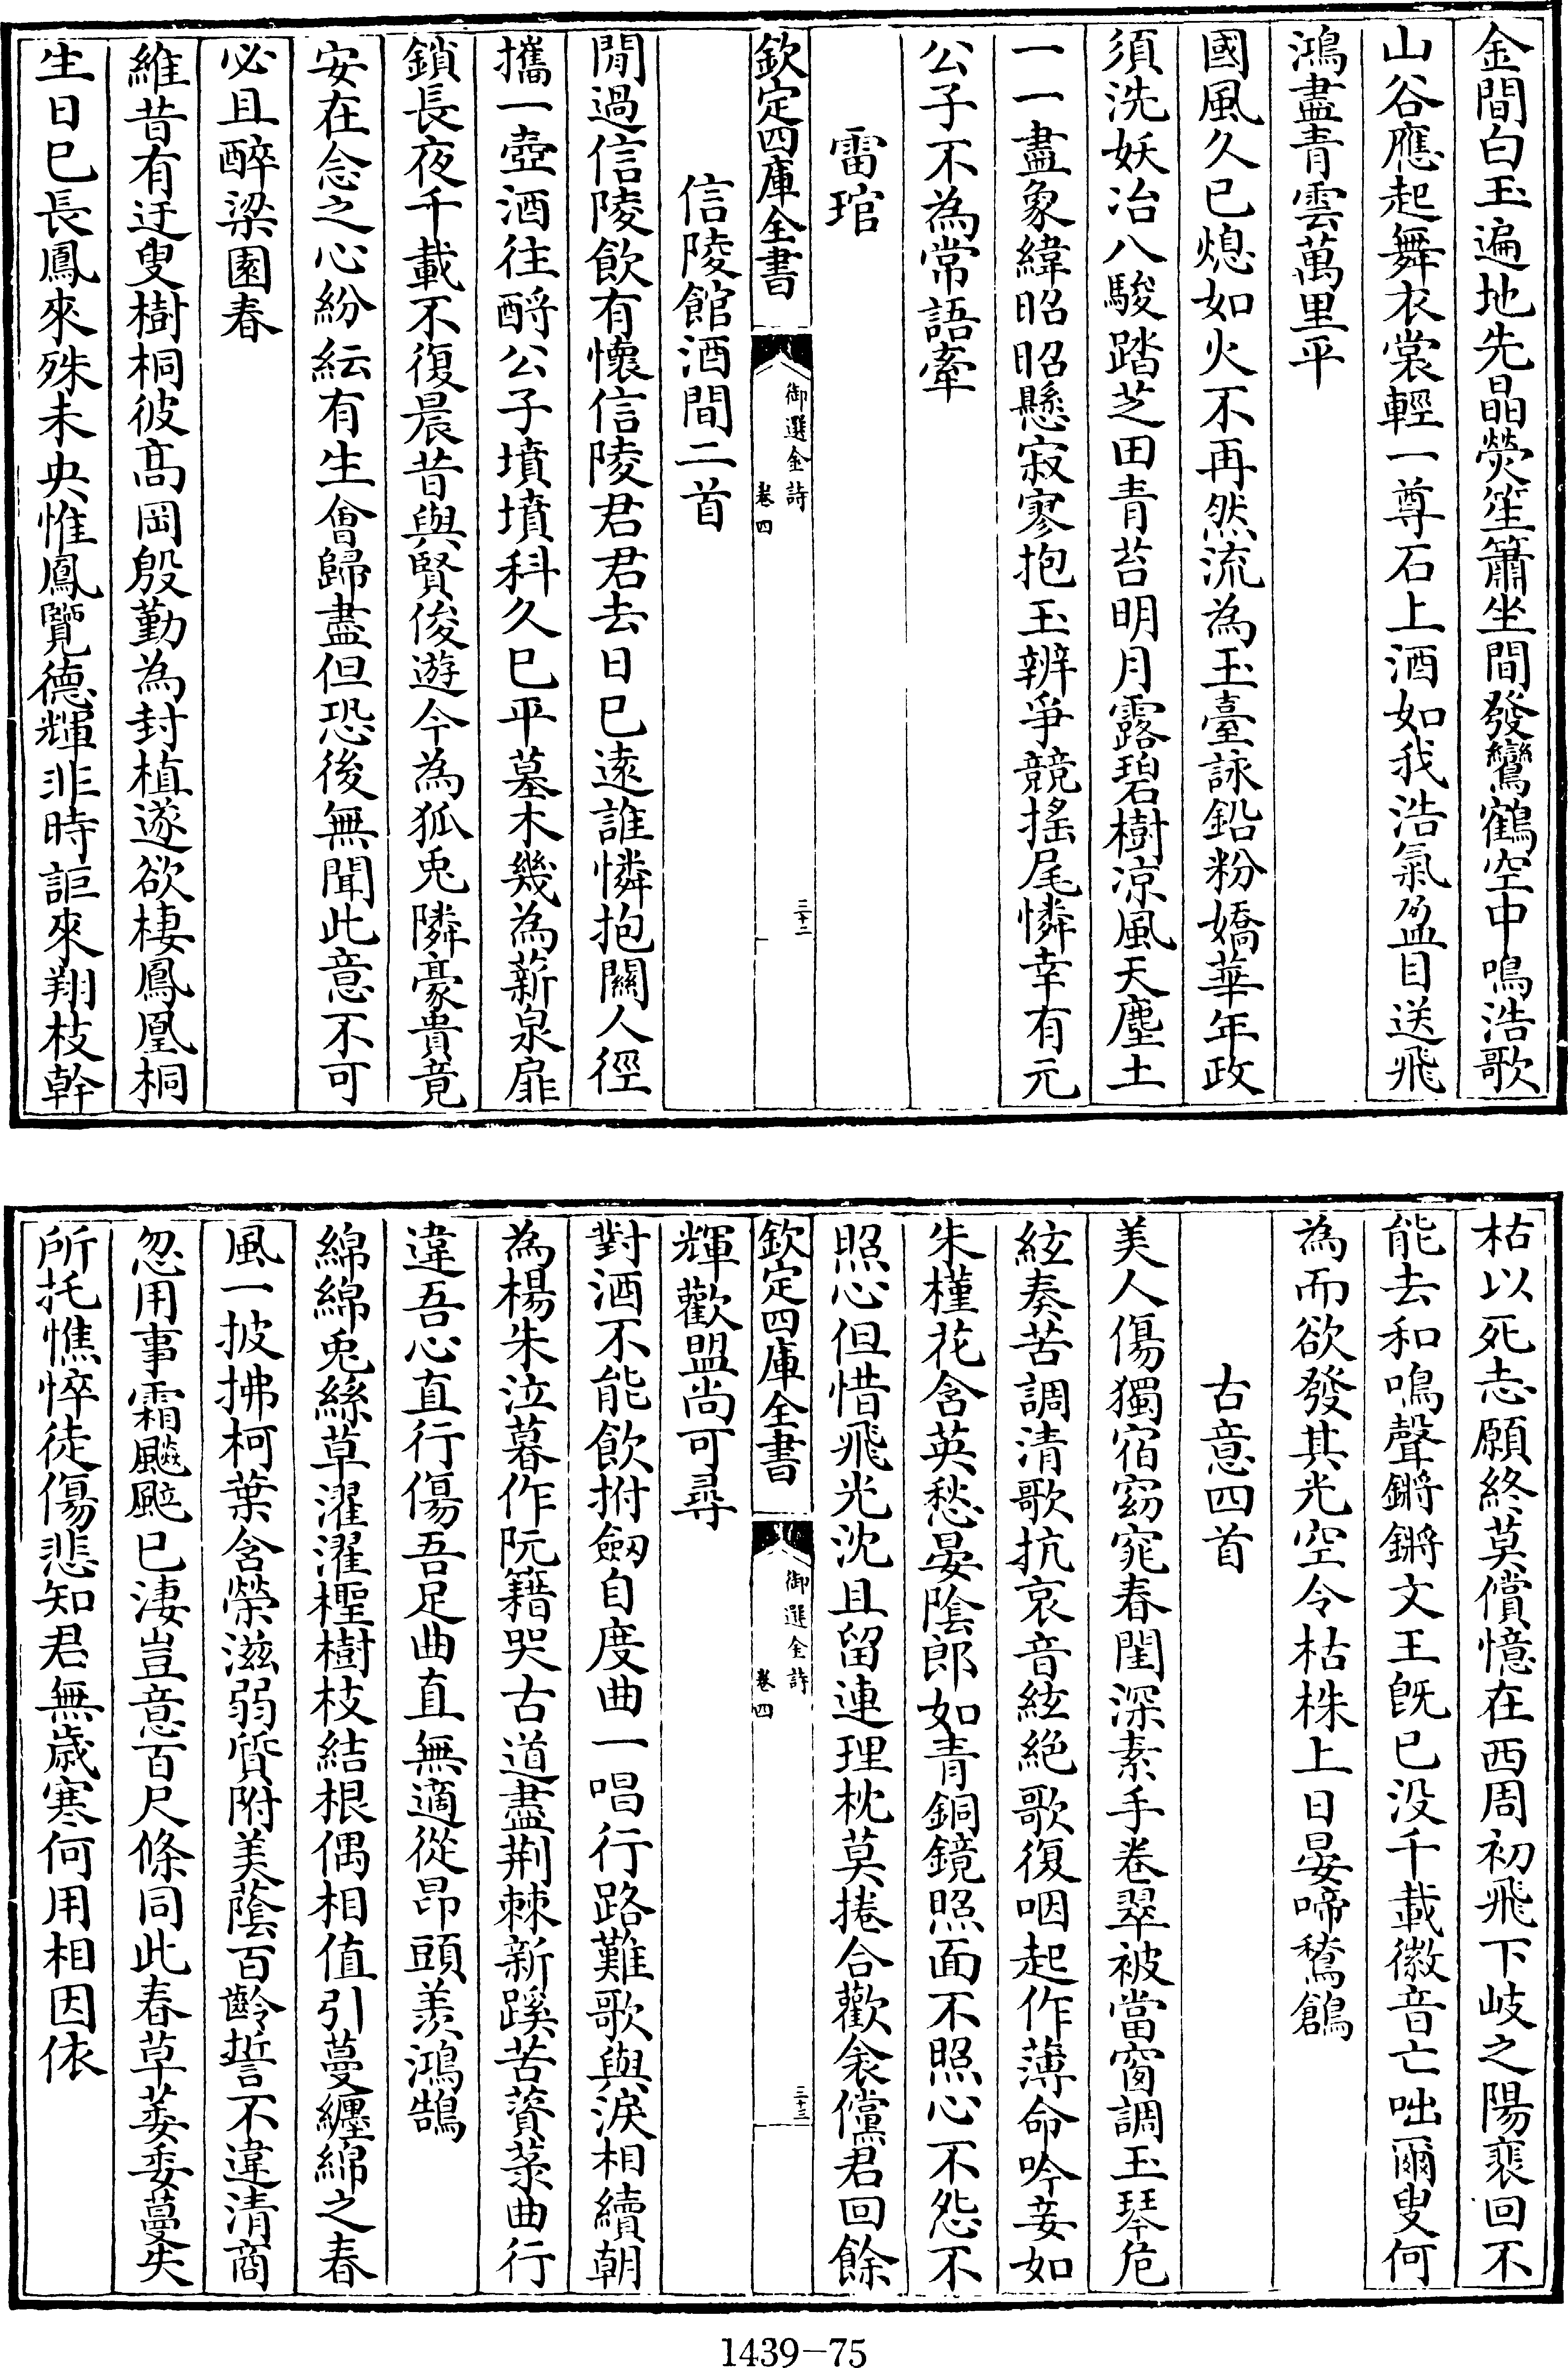 金間白玉遍地先晶熒笙簫坐間發鸞鶴空中鳴浩歌
山谷應起舞衣裳輕一尊石上酒如我浩氣盈目送飛
鴻盡青雲萬里平
國風久已熄如火不再然流為玉臺詠鉛粉嬌華年政
須洗妖冶八駿踏芝田青苔明月露碧樹凉風天塵土
一一盡象緯昭昭懸寂寥抱玉辨爭競搖尾憐幸有元
公子不為常語牽
雷琯
欽定四庫全書
御選金詩
卷四
三十二
信陵館酒間二首
閒過信陵飲有懷信陵君君去日已遠誰憐抱關人徑
攜一壺酒往酹公子墳墳科久已平墓木幾為薪泉扉
鎖長夜千載不復晨昔與賢俊遊今為狐兎隣豪貴竟
安在念之心紛紜有生會歸盡但恐後無聞此意不可
必且醉梁園春
維昔有迂叟樹桐彼髙岡殷勤為封植遂欲棲鳳凰桐
生日已長鳳來殊未央惟鳳覽德輝非時詎來翔枝幹
枯以死志願終莫償憶在西周初飛下岐之陽裴回不
能去和鳴聲鏘鏘文王旣已没千載徽音亡咄爾叟何
為而欲發其光空令枯株上日晏啼鶖鶬
古意四首
美人傷獨宿窈窕春閨深素手卷翠被當窗調玉琴危
絃奏苦調清歌抗哀音絃絶歌復咽起作薄命吟妾如
朱槿花含英愁晏陰郎如青銅鏡照面不照心不怨不
照心但惜飛光沈且留連理枕莫捲合歡衾儻君回餘
欽定四庫全書
御選金詩
卷四
三十三
輝歡盟尚可尋
對酒不能飲拊劔自度曲一唱行路難歌與淚相續朝
為楊朱泣暮作阮籍哭古道盡荆棘新蹊苦薋菉曲行
違吾心直行傷吾足曲直無適從昂頭羨鴻鵠
綿綿兎絲草濯濯檉樹枝結根偶相值引蔓纏綿之春
風一披拂柯葉含榮滋弱質附美蔭百齡誓不違清商
忽用事霜飈颭已淒豈意百尺條同此春草萎委蔓失
所托憔悴徒傷悲知君無歲寒何用相因依
1439-75